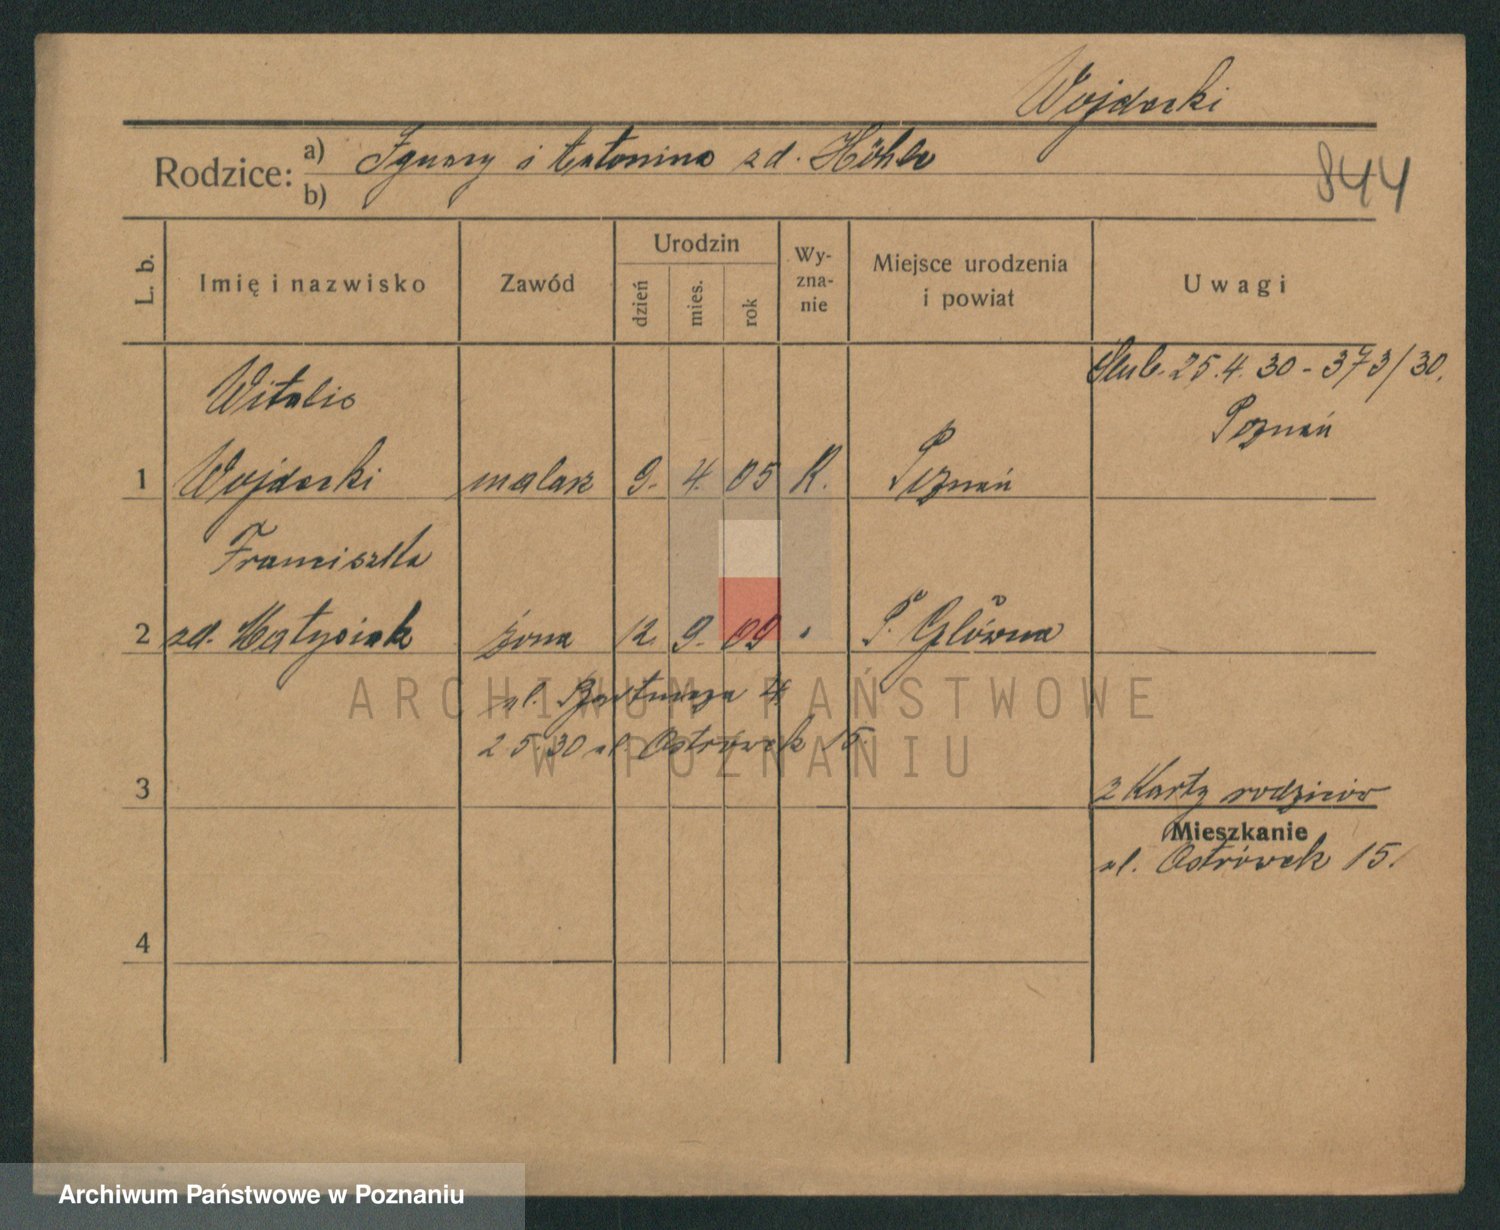 Wojdecki
Rodzice: a) Ignacy i Antonina zd. Höhle
b)
844
L. b. Imię i nazwisko Zawód Urodzin dzień mies. rok Wy-zna-nie Miejsce urodzenia i powiat Uwagi
Ślub. 25.4.30 - 373/30.
Poznań
Witalis
1 Wojdecki malarz 9. 4. 05 R. Poznań
Franciszka
2 zd. Matysiak żona 12. 9. 09 " P. Główna
ul. 4
2.5.30 ul. Ostrówek 15.
ARCHIWUM PAŃSTWOWE
W POZNANIU
3
z Karty rodziców
Mieszkanie
ul. Ostrówek 15.
4
Archiwum Państwowe w Poznaniu